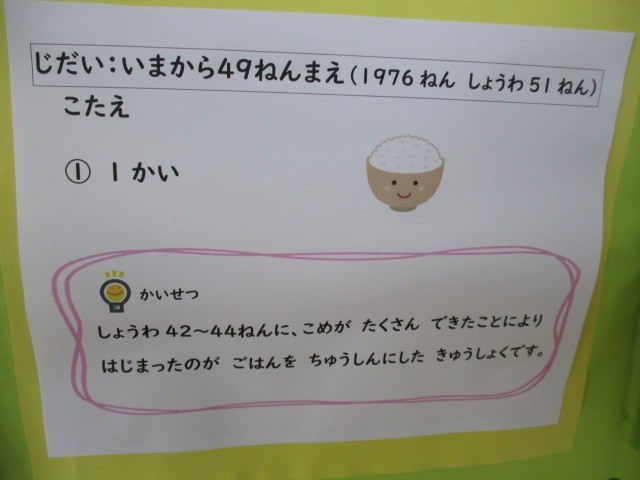 じだい：いまから49ねんまえ（1976ねん しょうわ51ねん）
こたえ
① 1かい
かいせつ
しょうわ 42～44ねんに、こめが たくさん できたことにより
はじまったのが ごはんを ちゅうしんにした きゅうしょくです。